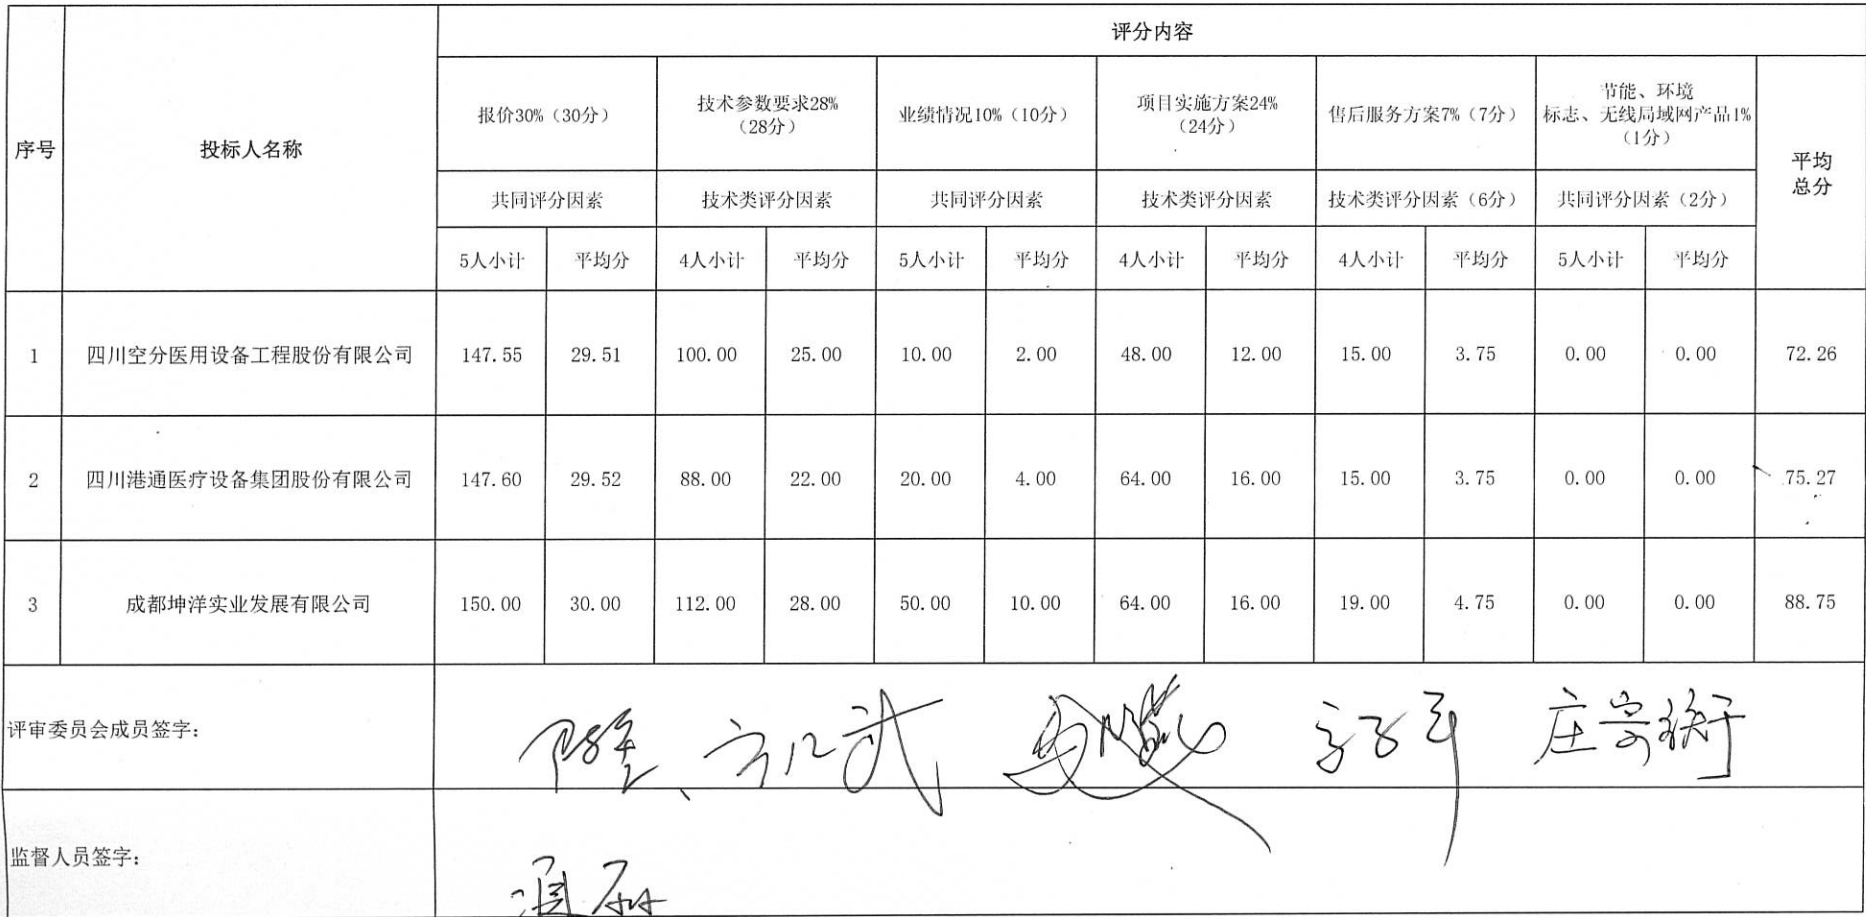 评分内容
序号 投标人名称 报价30%（30分） 技术参数要求28% 业绩情况10%（10分） 项目实施方案24% 售后服务方案7%（7分） 节能、环境 平均
（28分） （24分） 标志、无线局域网产品1% 总分
（1分）
共同评分因素 技术类评分因素 共同评分因素 技术类评分因素 技术类评分因素（6分） 共同评分因素（2分）
5人小计 平均分 4人小计 平均分 5人小计 平均分 4人小计 平均分 4人小计 平均分 5人小计 平均分
1 四川空分医用设备工程股份有限公司 147.55 29.51 100.00 25.00 10.00 2.00 48.00 12.00 15.00 3.75 0.00 0.00 72.26
2 四川港通医疗设备集团股份有限公司 147.60 29.52 88.00 22.00 20.00 4.00 64.00 16.00 15.00 3.75 0.00 0.00 75.27
3 成都坤洋实业发展有限公司 150.00 30.00 112.00 28.00 50.00 10.00 64.00 16.00 19.00 4.75 0.00 0.00 88.75
评审委员会成员签字：
监督人员签字：